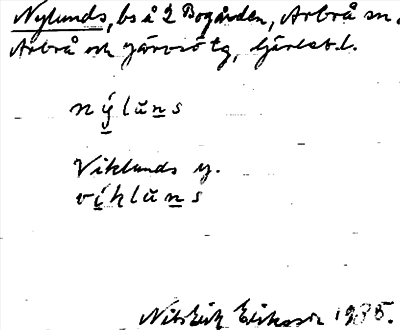 Nylunds, bs å 2 Bogården, Arbrå sn.
Arbrå och Järvsö tg, Gävleb. l.
nýlŭns
Viklunds y.
víklŭns
Nils Erik Eriksson 1935.